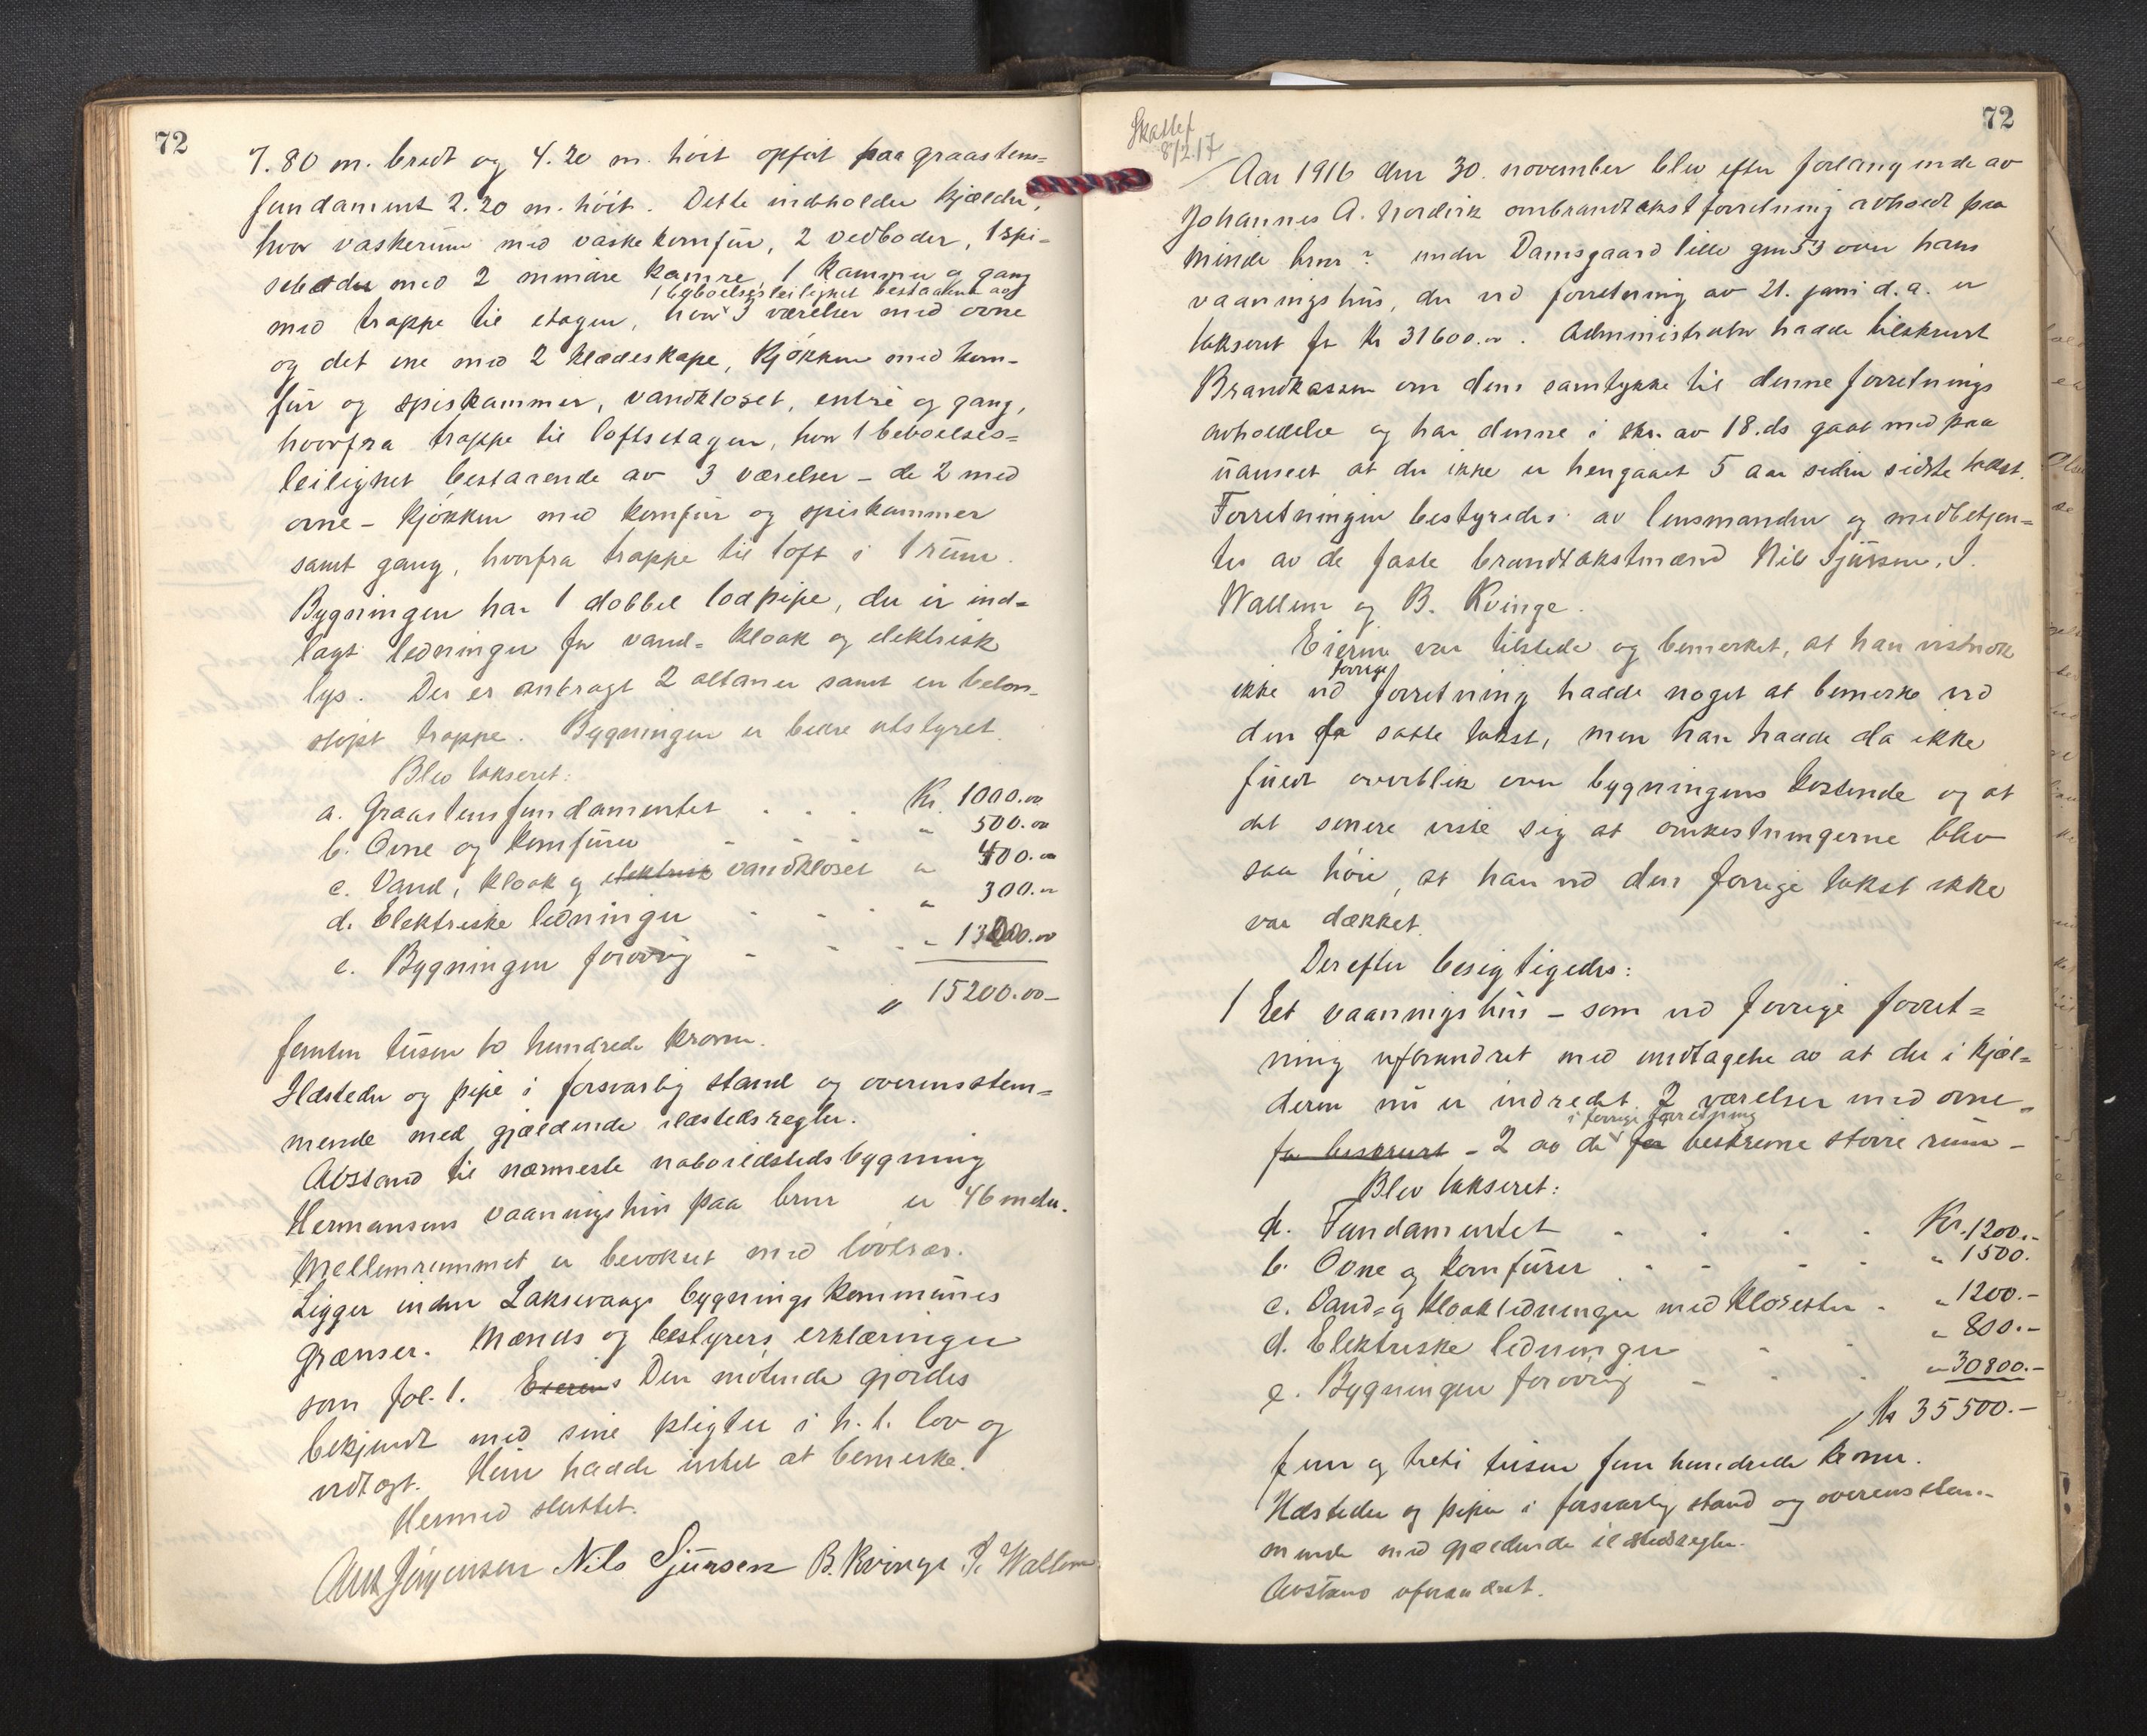 72
7.80 m. bredt og 4.20 m. høit opført paa graastens=
fundament 2.20 m. høit. Dette indeholder kjælder,
hvor vaskerum med vaskekomfur, 2 vedboder, 1 spi=
sebod med 2 mindre kamre, 1 kammer og gang
1 beboelsesleilighet bestaaende av
med trappe til etagen, hvor 3 værelser med ovne
og det ene med 2 klædeskape, kjøkken med kom=
fur og spiskammer, vandkloset, entré og gang,
hvorfra trappe til loftsetagen, hvor 1 beboelses=
leilighet bestaaende av 3 værelser – de 2 med
ovne – kjøkken med komfur og spiskammer
samt gang, hvorfra trappe til loft i 1 rum.
Bygningen har 1 dobbel lodpipe, der er ind=
lagt ledninger for vand= kloak og elektrisk
lys. Der er anbragt 2 altaner samt en beton=
støpt trappe. Bygningen er bedre utstyret.
Blev takseret:
a. Graastensfundamentet . . . Kr. 1000.00
b. Ovne og komfurer - - - " 500.00
c. Vand, kloak og elektrisk vandkloset " 400.00
d. Elektriske ledninger - - - " 300.00
e. Bygningen forøvrig - - - " 13000.00
" 15200.00–
femten tusen to hundrede kroner.
Ildsteder og pipe i forsvarlig stand og overensstem=
mende med gjældende ildstedsregler.
Avstand til nærmeste naboildstedsbygning
Hermansens vaaningshus paa brnr er 46 meter.
Mellemrummet er bevokset med løvtrær.
Ligger inden Laksevaags bygningskommunes
grænser. Mænds og bestyrers erklæringer
som fol. 1. Eierens Den møtende gjordes
bekjendt med sine pligter i h. t. lov og
vedtægt. Hun hadde intet at bemerke.
Hermed sluttet.
Ant Jørgensen Nils Sjursen B. Kvinge I. Wallem
72
8/2.17
Aar 1916 den 30. november blev efter forlangende av
Johannes A. Nordvik ombrandtakstforretning avholdt paa
Minde brnr ? under Damsgaard lille gnr 53 over hans
vaaningshus, der ved forretning av 21. juni d.a. er
takseret for kr 31600.00. Administrator hadde tilskrevet
Brandkassen om dens samtykke til denne forretnings
avholdelse og har denne i skr. av 18. ds gaat med paa
uanseet at der ikke er hengaaet 5 aar siden sidste takst.
Forretningen bestyredes av lensmanden og medbetjen=
tes av de faste brandtakstmænd Nils Sjursen, I.
Wallem og B. Kvinge.
Eieren var tilstede og bemerket, at han vistnok
forrige
ikke ved forretning hadde noget at bemerke ved
den da satte takst, men han hadde da ikke
fuldt overblik over bygningens kostende og at
det senere viste sig at omkostningerne blev
saa høie, at han ved den forrige takst ikke
var dækket.
Derefter besigtigedes:
1 Et vaaningshus – som ved forrige forret=
ning uforandret med undtagelse av at der i kjæl=
deren nu er indredet 2 værelser med ovne –
i forrige forretning
før beskrevet – 2 av de før beskrevne større rum –
Blev takseret:
a. Fundamentet . . . . Kr. 1200.–
b. Ovne og komfurer - - - - " 1500.
c. Vand= og kloakledninger med klosetter - " 1200.–
d. Elektriske ledninger - - " 800.–
e. Bygningen forøvrig - - - " 30800.–
Kr 35500.–
fem og treti tusen fem hundrede kroner.
Ildsteder og piper i forsvarlig stand og overensstem=
mende med gjældende ildstedsregler.
Avstand uforandret.